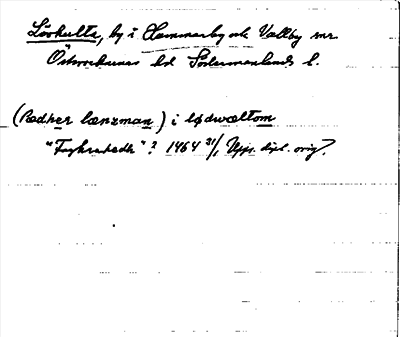 Lövhulta, by i Hammarby och Vallby snr.
Österrekarnes hd Södermanlands l.
(Pædher lænzman) i lødwæltom
"Foghrahedh"? 1464 31/1 Upps. dipl. orig.